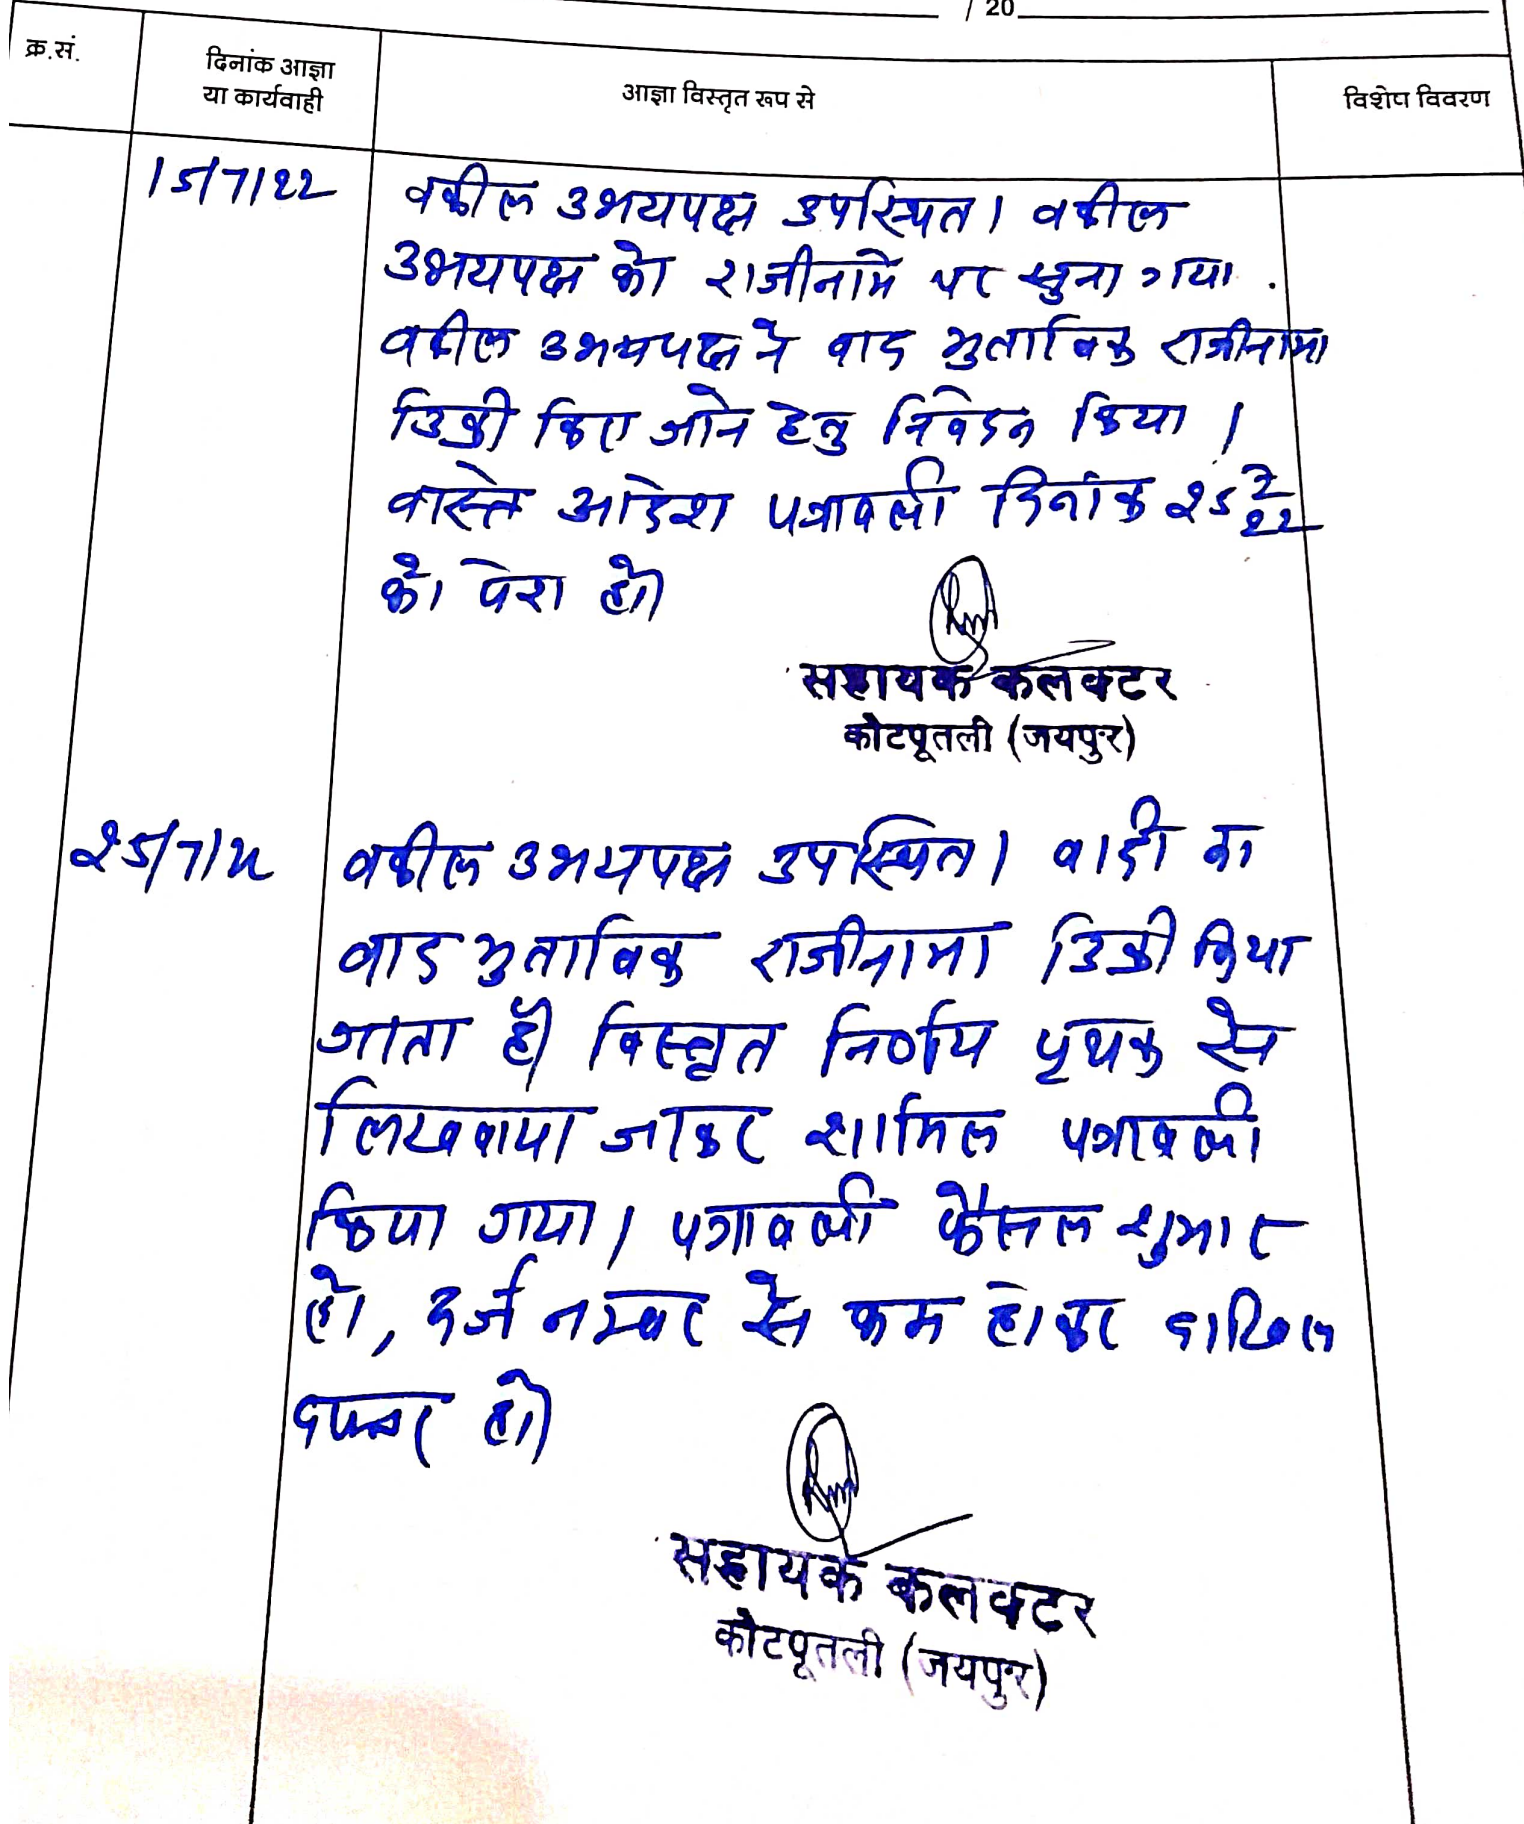 / 20
क्र.सं.
दिनांक आज्ञा
या कार्यवाही
आज्ञा विस्तृत रूप से
विशेष विवरण
15/7/22
वकील उभयपक्ष उपस्थित। वकील
उभयपक्ष को राजीनामे पर सुना गया.
वकील उभयपक्ष ने वाद मुताबिक राजीनामा
डिक्री किए जाने हेतु निवेदन किया।
वास्ते आदेश पत्रावली दिनांक 25/7/22
को पेश हो।
सहायक कलक्टर
कोटपूतली (जयपुर)
25/7/22
वकील उभयपक्ष उपस्थित। वादी का
वाद मुताबिक राजीनामा डिक्री किया
जाता है। विस्तृत निर्णय पृथक से
लिखवाया जाकर शामिल पत्रावली
किया गया। पत्रावली फैसल शुमार
हो, दर्ज नम्बर से कम होकर दाखिल
दफ्तर हो।
सहायक कलक्टर
कोटपूतली (जयपुर)